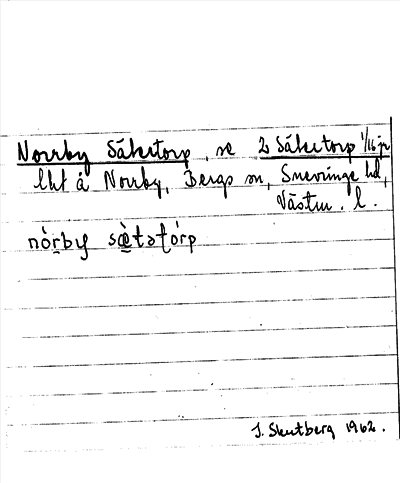 Norrby Sätertorp, se 2 Sätertorp 1/16 jr
lht å Norrby, Bergs sn, Snevringe hd,
Västm. l.
nòrby sæ̀tətórp
J. Skutberg 1962.